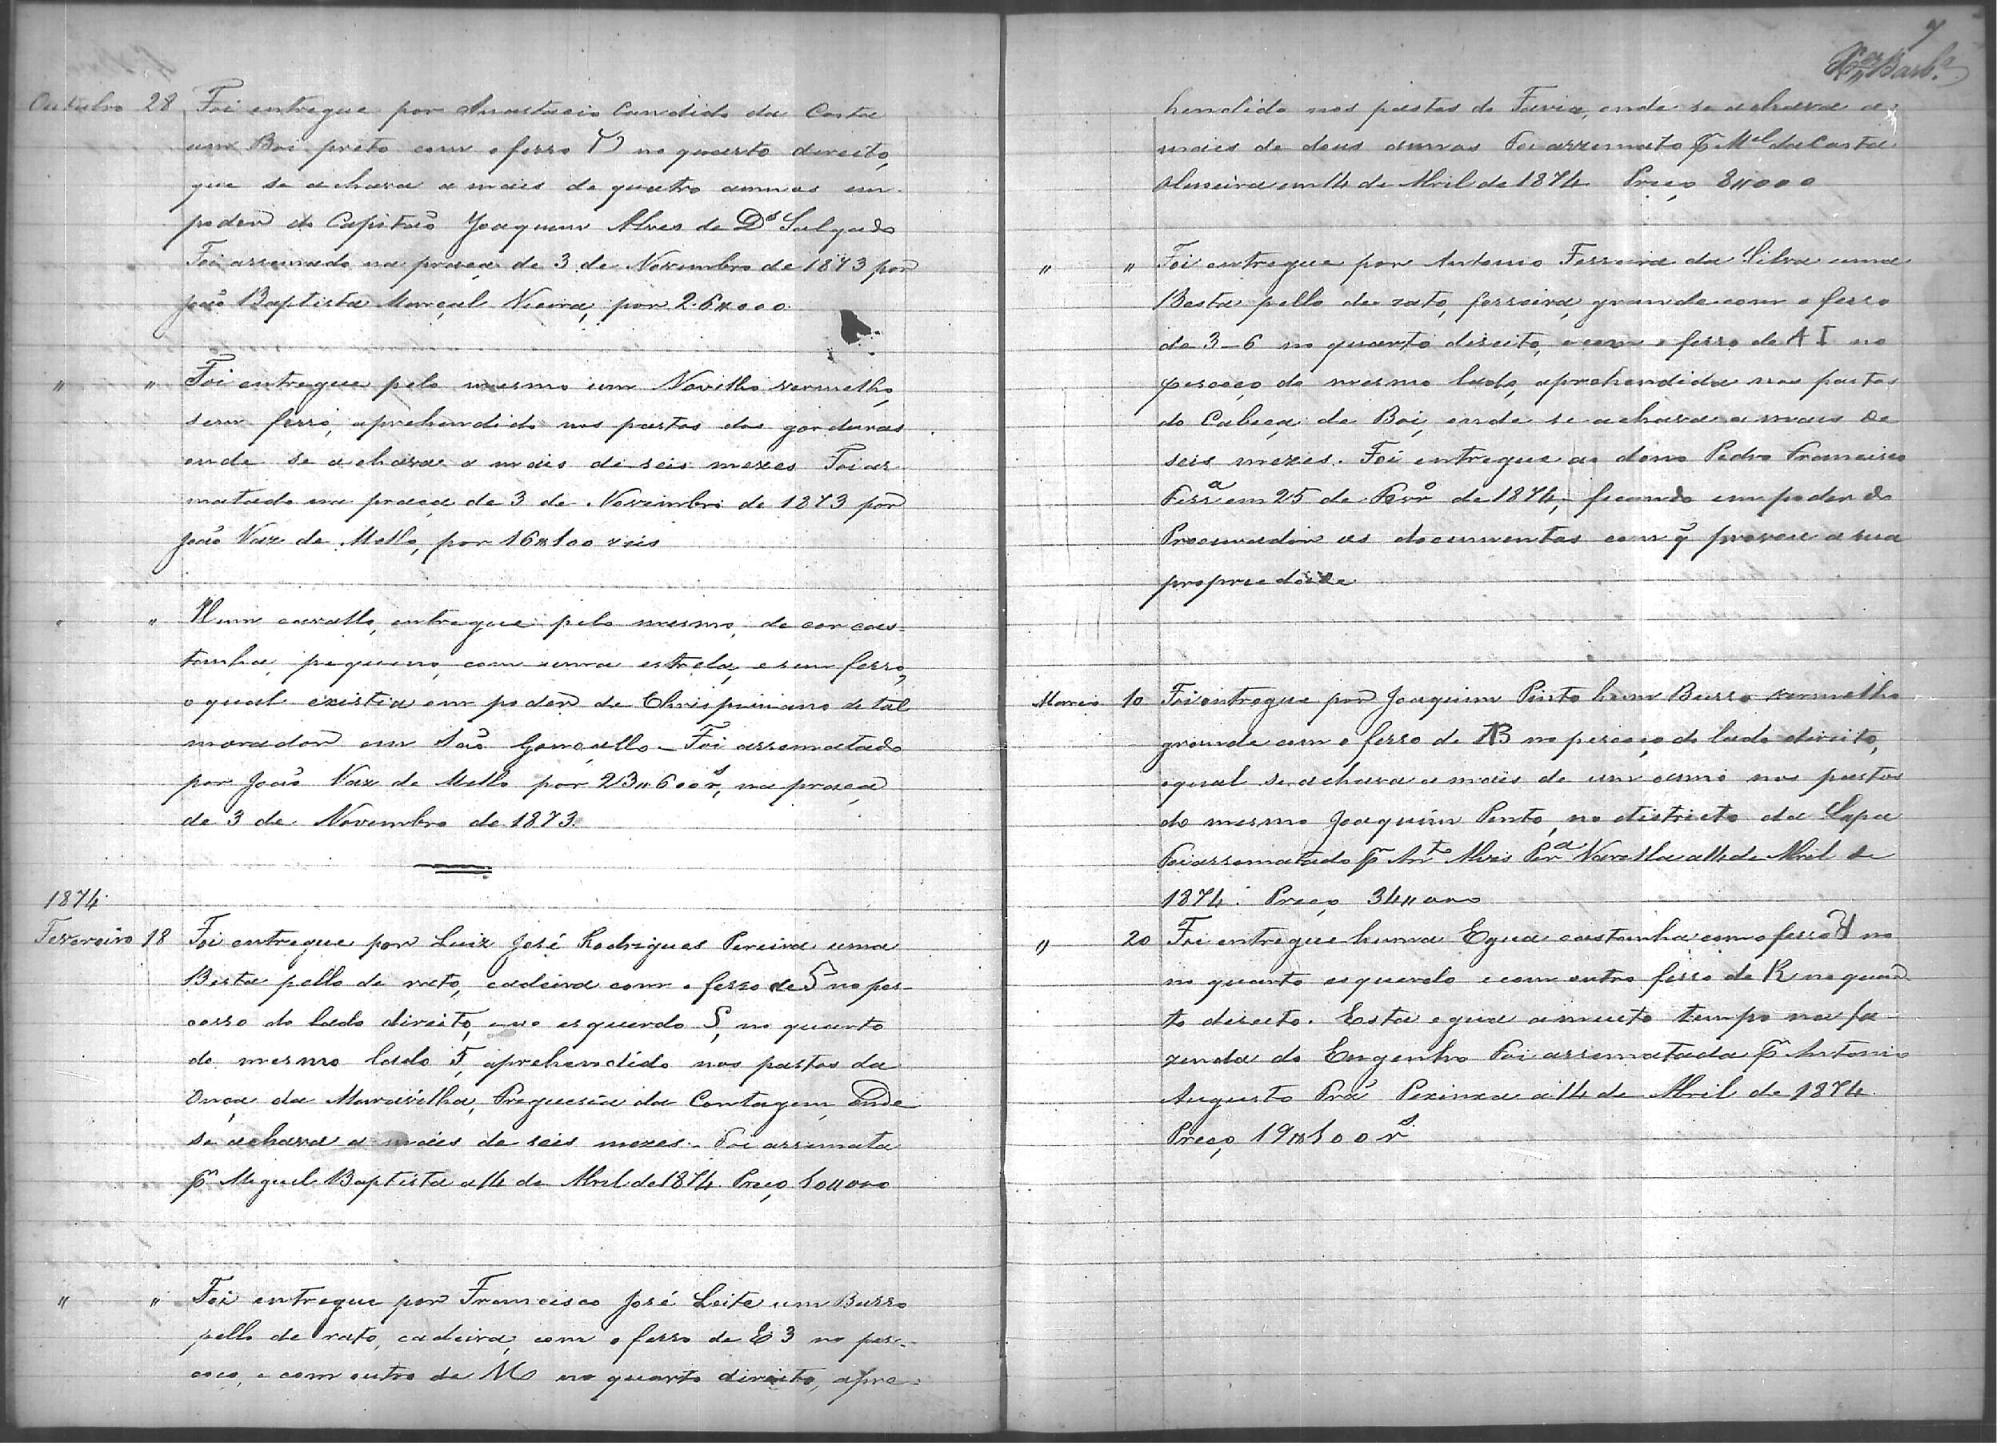 Outubro 28 Foi entregue por Anastacio Candido da Costa
um Boi preto com o ferro no quarto direito,
que se achava a mais de quatro annos em
poder do Capitão Joaquim Alves de Ds Salgado
Foi arrematado na praça de 3 de Novembro de 1873 por
João Baptista Marçal Vieira, por 26"000
" " Foi entregue pelo mesmo um Novilho vermelho,
sem ferro, aprehendido nos pastos das gorduras
onde se achava a mais de seis mezes Foi ar
matado em praça de 3 de Novembro de 1873 por
João Vaz de Mello, por 16"100 reis
" " Hum cavallo, entregue pelo mesmo, de cor cas-
tanha, pequeno, com uma estrela, e sem ferro,
o qual existia em poder de Chrispiniano de tal
morador em São Gonçallo - Foi arrematado
por João Vaz de Mello por 23"600rs, na praça
de 3 de Novembro de 1873.
1874
Fevereiro 18 Foi entregue por Luiz José Rodrigues Pereira uma
Besta pello de rato, cadeira com o ferro de 5 no pes-
cosso do lado direito, e no esquerdo S, no quarto
do mesmo lado 5, aprehendido nos pastos da
Onça da Maravilha, Freguesia da Contagem, onde
se achava a mais de seis mezes. Foi arremata
pr Miguel Baptista a 14 de Abril de 1874. Preço 10"000
" " Foi entregue por Francisco José Leite um Burro
pello de rato, cadeira, com o ferro de E 3 no pes-
coco, e com outro de M no quarto direito, apre-
7
Barb.a
hendido nos pastos do Faria, onde se achava a
mais de dous annos Foi arrematado pr Mel da Costa
Moreira em 14 de Abril de 1874 Preço 8"000
" " Foi entregue por Antonio Ferreira da Silva uma
Besta pello de rato, ferreira, grande com o ferro
de 3-6 no quarto direito, e com o ferro de A I no
pescoço do mesmo lado, aprehendida nos pastos
do Cabeça de Boi, onde se achava a mais de
seis mezes. Foi entregue ao dono Pedro Francisco
Ferra em 25 de Fevro de 1874, ficando em poder do
Procurador os documentos com q̃ provou a sua
propriedade
Marco 10 Foi entregue por Joaquim Pinto hum Burro vermelho
grande com o ferro de AB no pescoço do lado direito,
o qual se achava a mais de um anno nos pastos
do mesmo Joaquim Pinto, no districto da Lapa
Foi arrematado pr Anto Alves Pera Varella a 14 de Abril de
1874. Preço 34"000
" 20 Foi entregue huma Egua castanha com o ferro no
no quarto esquerdo e com outro ferro de R no quar
to direito. Esta egua a muito tempo na fa-
zenda do Engenho Foi arrematada pr Antonio
Augusto Pra a 14 de Abril de 1874
Preço 19"100 rs